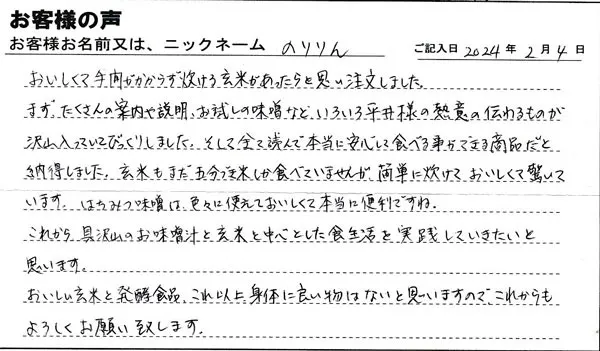 お客様の声
お客様お名前又は、ニックネーム のりりん ご記入日 2024年 2月 4日
おいしくて手間がかからず炊ける玄米があったらと思い注文しました。
まず、たくさんの案内や説明、お試しの味噌など、いろいろ平井様の熱意の伝わるものが
沢山入っていてびっくりしました。そして全て読んで本当に安心して食べる事ができる商品だと
納得しました。玄米もまだ五分づき米しか食べていませんが、簡単に炊けて、おいしくて驚いて
います。はちみつ味噌は、色々に使えておいしくて本当に便利ですね。
これから、具沢山のお味噌汁と玄米を中心とした食生活を実践していきたいと
思います。
おいしい玄米と発酵食品、これ以上身体に良い物はないと思いますので、これからも
よろしくお願い致します。